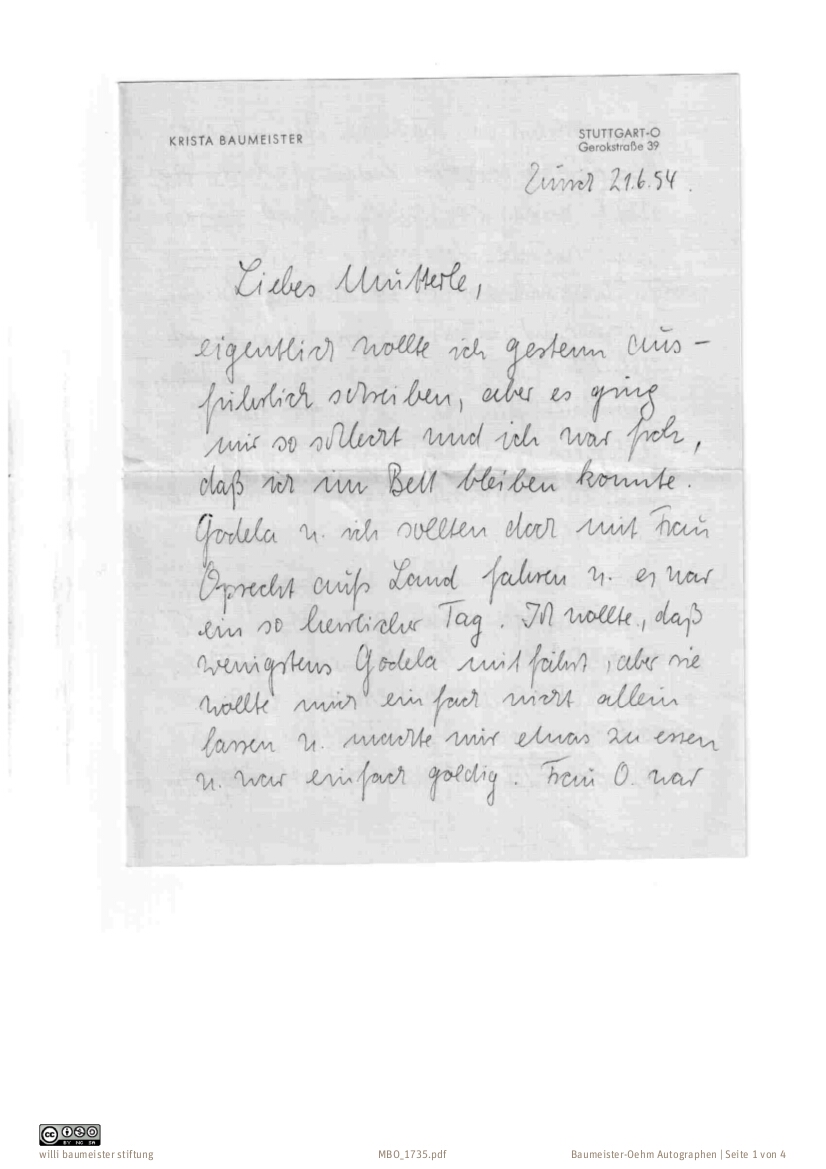 KRISTA BAUMEISTER
STUTTGART-O
Gerokstraße 39
Zürich 21.6.54.
Liebes Mutterle,
eigentlich wollte ich gestern aus-
führlich schreiben, aber es ging
mir so schlecht und ich war froh,
daß ich im Bett bleiben konnte.
Godela u. ich sollten doch mit Frau
Oprecht aufs Land fahren u. es war
ein so herrlicher Tag. Ich wollte, daß
wenigstens Godela mitfährt, aber sie
wollte mich einfach nicht allein
lassen u. machte mir etwas zu essen
u. war einfach goldig. Frau O. war
willi baumeister stiftung
MBO_1735.pdf
Baumeister-Oehm Autographen | Seite 1 von 4
CC BY NC SA